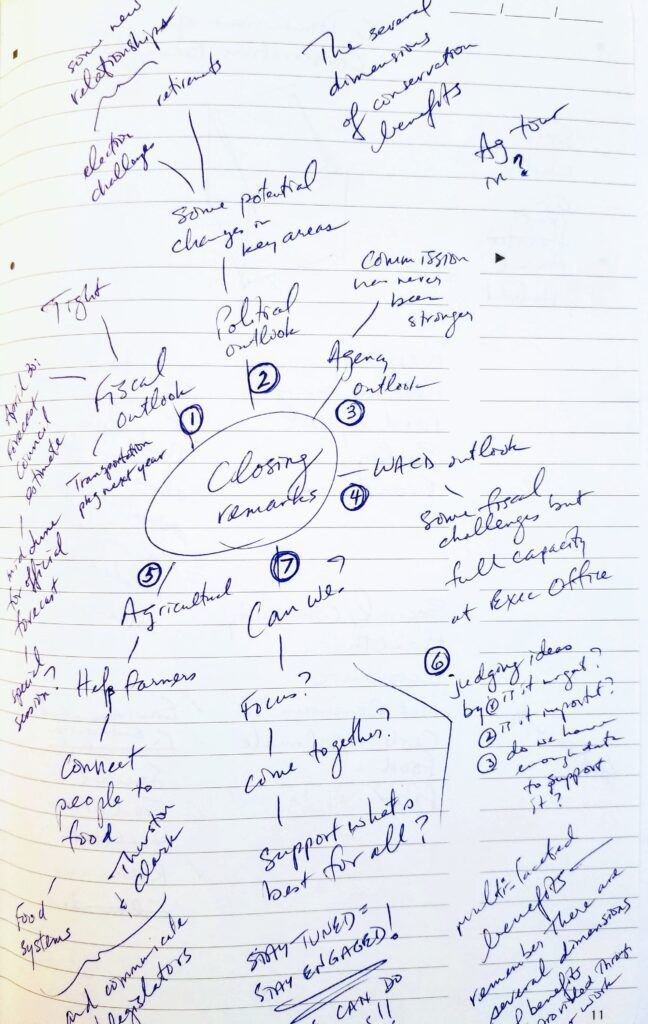 some new
relationships
retirements
election
challenges
The several
dimensions
of conservation
benefits
Ag tour
in?
Some potential
changes in
key areas
Commission
has never
been
stronger
Tight
Political
outlook
Agency
outlook
Fiscal
outlook
April 20:
forecast
Council
estimate
mid June
for official
forecast
special
session?
Transportation
pkg next year
①
②
③
Closing
remarks
④
WACD outlook
Some fiscal
challenges but
full capacity
at Exec Office
⑤
Agricultural
⑦
Can we?
⑥
judging ideas
by ① is it urgent?
② is it important?
③ do we have
enough data
to support
it?
Help farmers
Connect
people to
food
Thurston
&
Clark
Food
systems
and communicate
legislators
Focus?
come together?
Support what's
best for all?
STAY-TUNED =
STAY ENGAGED!
CAN DO
!!
multi-faceted
benefits—
remember There are
several dimensions
of benefits
provided through
work
11